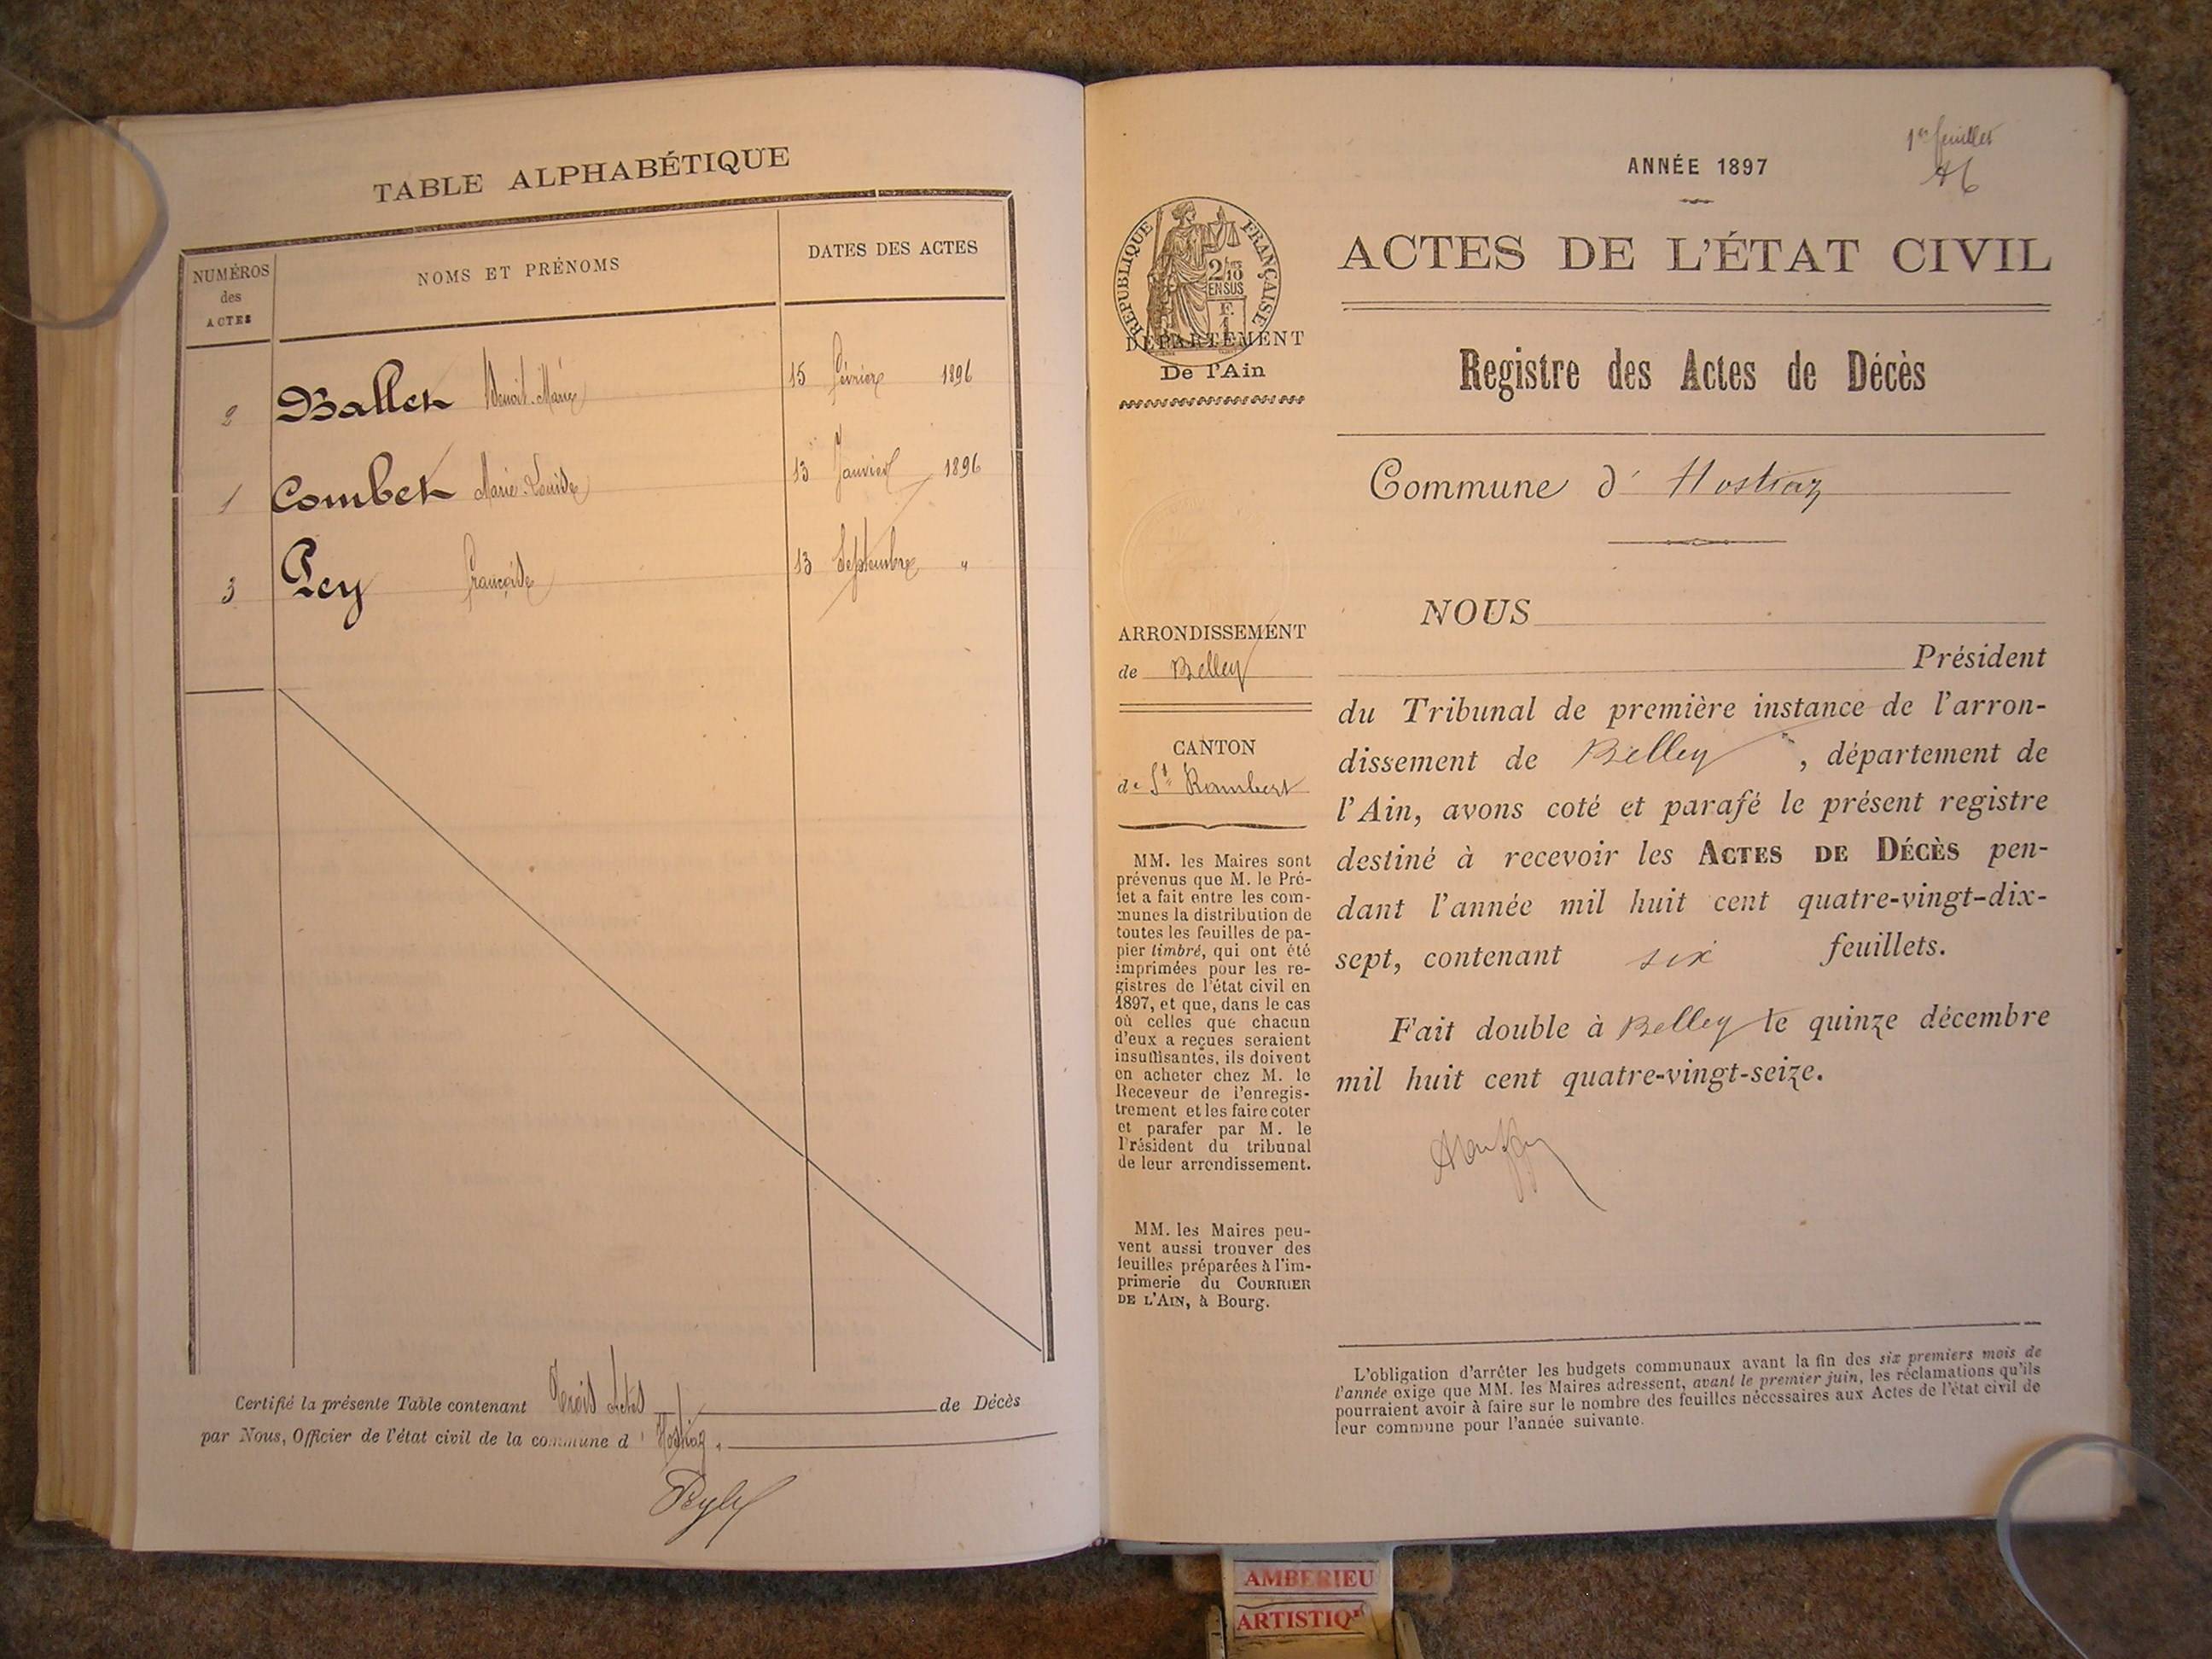 TABLE ALPHABÉTIQUE
NUMÉROS
des
ACTES
NOMS ET PRÉNOMS
DATES DES ACTES
2 Ballet Benoit-Marie 15 Février 1896
1 Combet Marie-Louise 13 Janvier 1896
3 Pey Françoise 13 Septembre "
Certifié la présente Table contenant Trois Actes de Décès
par Nous, Officier de l'état civil de la commune d' Hostiaz.
1er feuillet
ANNÉE 1897
RÉPUBLIQUE FRANÇAISE
2/10
EN SUS
DÉPARTEMENT
De l'Ain
ACTES DE L'ÉTAT CIVIL
Registre des Actes de Décès
Commune d' Hostiaz
ARRONDISSEMENT
de Belley
CANTON
de St Rambert
MM. les Maires sont
prévenus que M. le Pré-
fet a fait entre les com-
munes la distribution de
toutes les feuilles de pa-
pier timbré, qui ont été
imprimées pour les re-
gistres de l'état civil en
1897, et que, dans le cas
où celles que chacun
d'eux a reçues seraient
insuffisantes, ils doivent
en acheter chez M. le
Receveur de l'enregis-
trement et les faire coter
et parafer par M. le
Président du tribunal
de leur arrondissement.
MM. les Maires peu-
vent aussi trouver des
feuilles préparées à l'im-
primerie du COURRIER
DE L'AIN, à Bourg.
NOUS
Président
du Tribunal de première instance de l'arron-
dissement de Belley, département de
l'Ain, avons coté et parafé le présent registre
destiné à recevoir les ACTES DE DÉCÈS pen-
dant l'année mil huit cent quatre-vingt-dix-
sept, contenant six feuillets.
Fait double à Belley le quinze décembre
mil huit cent quatre-vingt-seize.
L'obligation d'arrêter les budgets communaux avant la fin des six premiers mois de
l'année exige que MM. les Maires adressent, avant le premier juin, les réclamations qu'ils
pourraient avoir à faire sur le nombre des feuilles nécessaires aux Actes de l'état civil de
leur commune pour l'année suivante.
AMBERIEU
ARTISTIQ